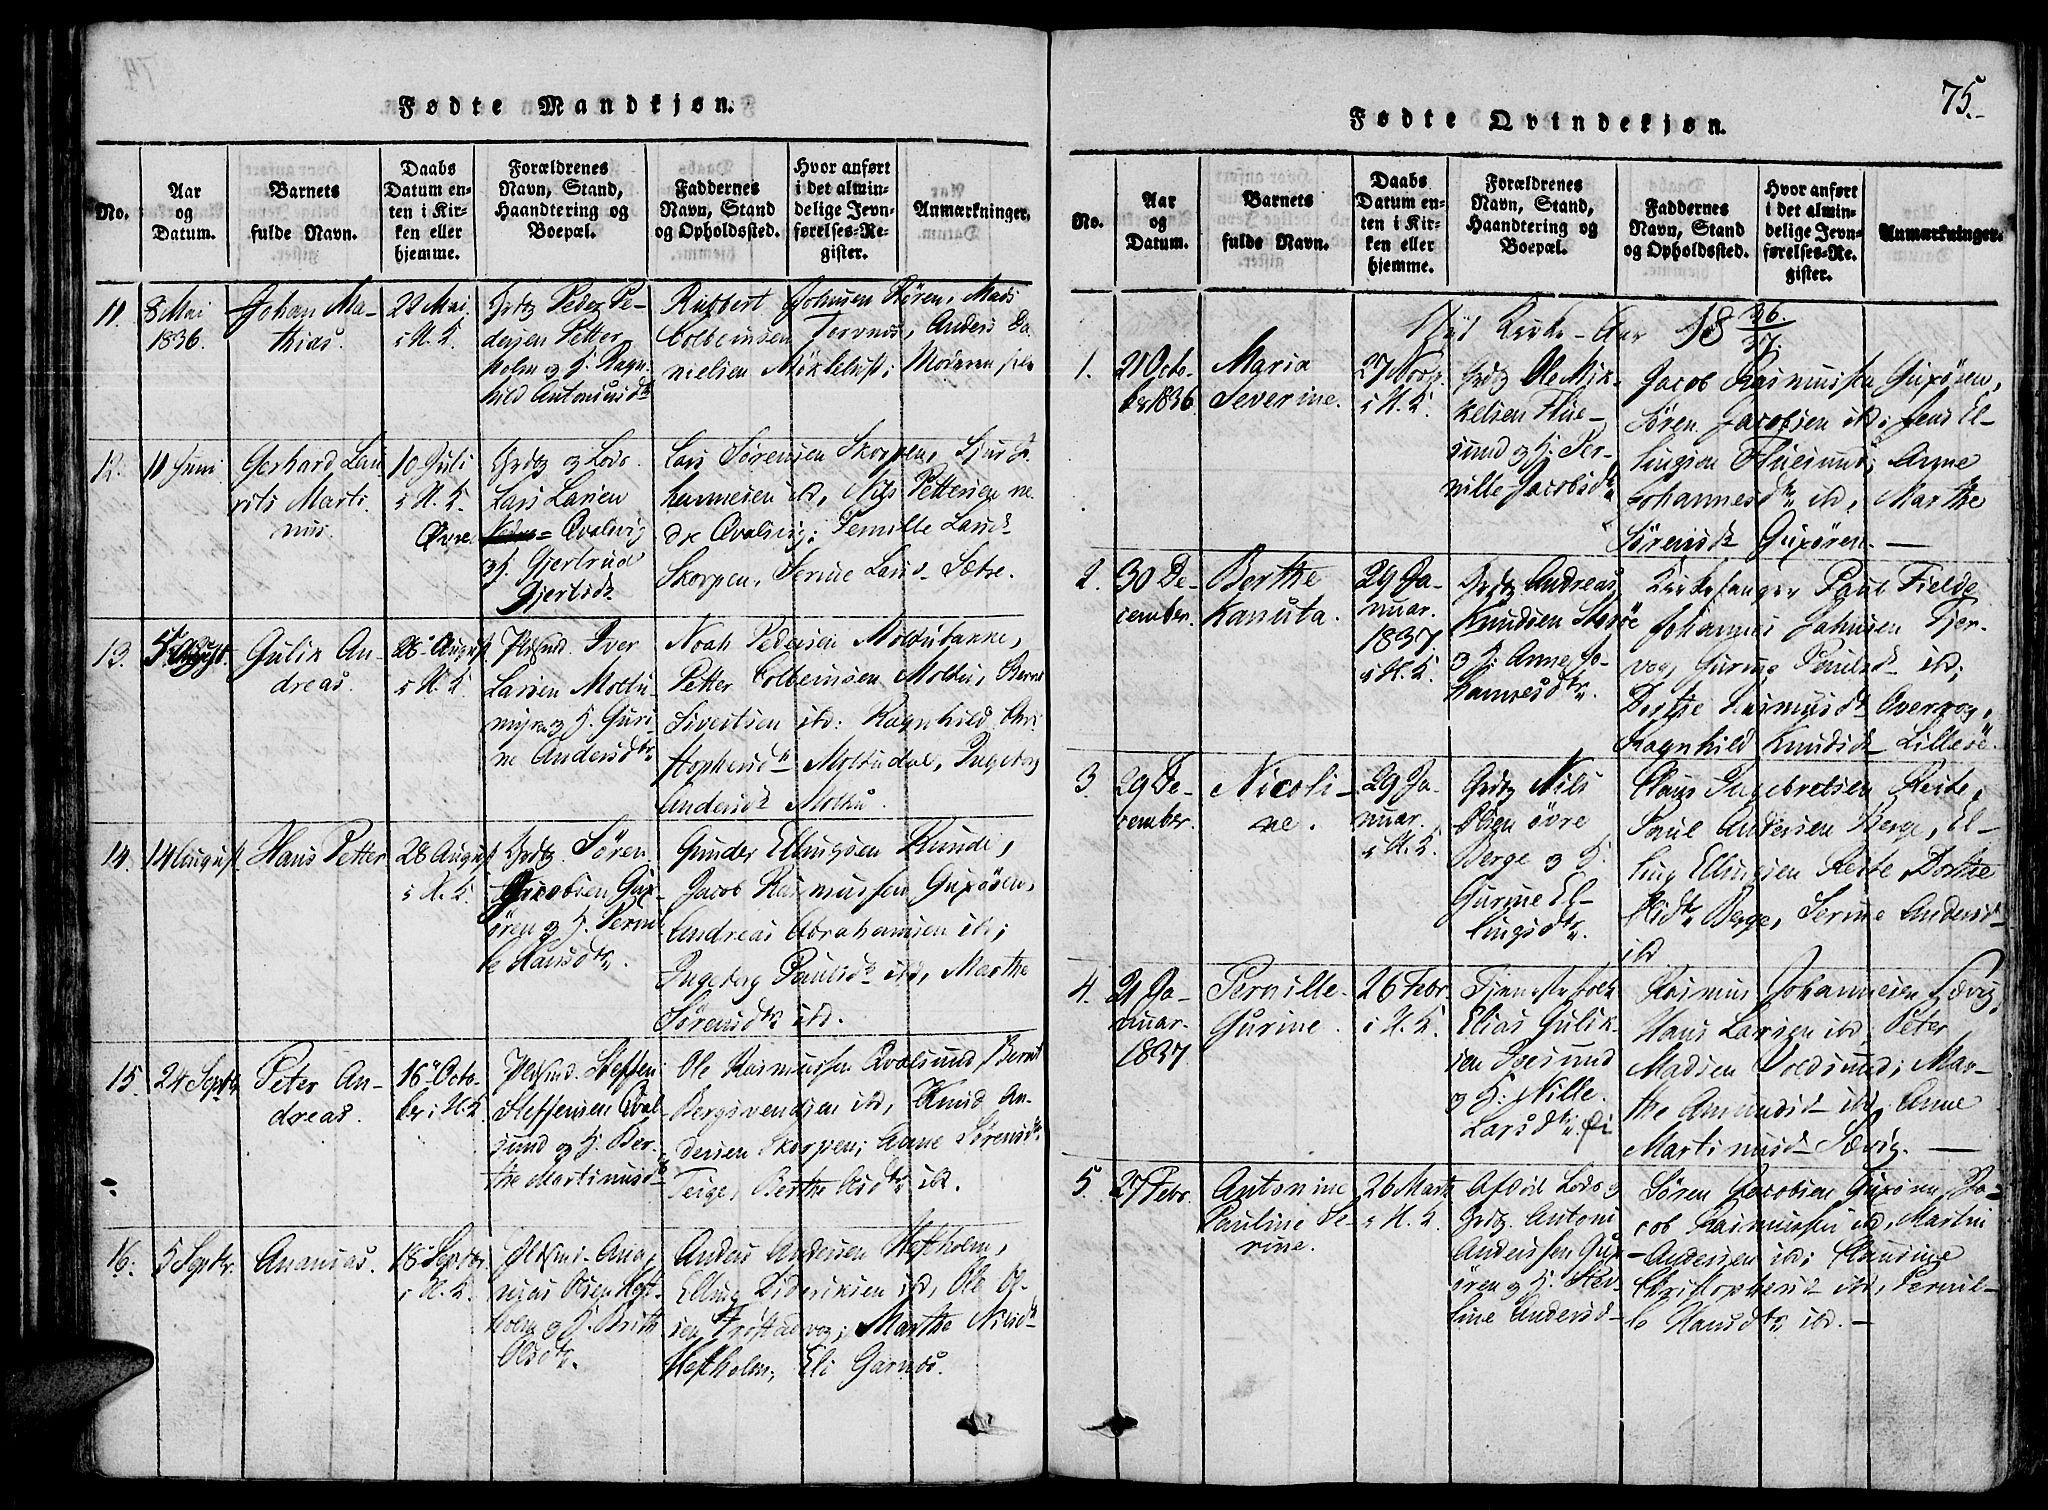 Fødte Mandkjøn.
No.
Aar
og
Datum.
Barnets
fulde Navn.
Daabs
Datum en-
ten i Kir-
ken eller
hjemme.
Forældrenes
Navn, Stand,
Haandtering og
Boepæl.
Faddernes
Navn, Stand
og Opholdssted.
Hvor anført
i det almin-
delige Jevn-
førelses-Re-
gister.
Anmærkninger.
11.
8 Mai
1836.
Johan Ma-
thias.
22 Mai
i H. K.
Grdb Peder Pe-
dersen Petter
holm og H. Ragn-
hild Antonsd
Johnsen Røren, Mads
Colbeinsen Torvnes, Anders Da-
nielsen Møklebust;
12.
11 Juni
Gerhard Lau
rits Marti
nus.
10 Juli
i H. K.
Øvre
Grdb og Lods
Lars Larsen
Qvalvig
og H. Gjertrud
Gjertsdr
Lars Sørensen Skorpen,
hannesen ibd, Nils Pettersen ne
dre Qvalvig; Pernille Larsdr
Skorpen, Serine Larsd Sætre.
13.
5 August.
Gulik An-
dreas.
28 August
i H. K.
Plssmd. Iver
Larsen Moltu-
myra og H. Guri-
ne Andersdtr
Noah Pedersen Moltubakke,
Petter Colbeinsen Moltu, Bernt
Sivertsen ibd: Ragnhild Chri
stophersdr Moltudal, Ingeborg
Andersdr Moltu.
14.
14 August.
Hans Petter
28 August
i H. K.
Grdb. Søren
Jacobsen Gux-
øren og H. Pernil
le Hansdtr.
Gunder Ellingsen Runde,
Jacob Rasmussen Guxøren,
Andreas Abrahamsen ibd;
Ingeborg Paulsdr ibd, Marthe
Sørensdtr ibd.
15.
24 Septbr
Peter An-
dreas.
16 Octo-
ber i H. K.
Plssmd. Steffen
Steffensen Qval-
sund og H. Ber-
the Martinusd
Ole Rasmussen Qvalsund, Bernt
Bergsvendsen ibd, Knud An-
dersen Skorpen; Anne Sørensdtr
Teige, Berthe Olsdtr ibd.
16.
5 Septbr.
Ananias.
18 Septbr.
i H. K.
Plssmd. Ana-
nias Olsen Heft
holm og H. Brith
Olsdtr.
Anders Andersen Heftholm,
Elling Dideriksen ibd, Ole Ol-
sen Frøstadvog; Marthe Nilsd
Heftholm, Eli Garnæs.
75.
Fødte Qvindekjøn.
No.
Aar
og
Datum.
Barnets
fulde Navn.
Daabs
Datum en-
ten i Kir-
ken eller
hjemme.
Forældrenes
Navn, Stand,
Haandtering og
Boepæl.
Faddernes
Navn, Stand
og Opholdssted.
Hvor anført
i det almin-
delige Jevn-
førelses-Re-
gister.
Anmærkninger.
Nyt Kirke-Aar 18 36/37.
1.
21 Octo-
ber 1836
Maria
Severine.
27 Novbr
i H. K.
Grdb Ole Mik-
kelsen Flue-
sund og H. Per-
nille Jacobsdr
Jacob Rasmussen Guxøren,
Søren Jacobsen ibd; Jens El-
lingsen Fluesund; Anne
Johannesdr ibd, Marthe
Sørensdr Guxøren. —
2.
30 De-
cember.
Berthe
Kanuta.
29 Ja-
nuar.
1837
i H. K.
Grdb Andreas
Knudsen Storøe
og H. Anne Jo-
hannesdtr.
Kirkesanger Paul Fielde
Johannes Johnsen Tjer-
vog, Guring Paulsdr ibd;
Berthe Rasmusdr Overvog,
Ragnhild Knudsdr Lillesøe.
3.
29 De-
cember.
Nicoli-
ne.
29 Ja-
nuar.
i H. K.
Grdb Nils
Olsen øvre
Berge og H.
Gurine El-
lingsdtr.
Claus Ingebretsen Reite,
Poul Andersen Berge, El-
ling Ellingsen Reite, Dorthe
Berge, Serine Andersd
ibd
4.
21 Ja-
nuar.
1837
Pernille
Gurine.
26 Febr
i H. K.
Tjenestefolk
Elias Gulik-
sen Boesund
og H. Nille
Larsdtr.
Rasmus Johannesen Sævig,
Hans Larsen ibd; Peter
Madsen Voldsund; Mar-
the Amundsd ibd; Anne
Martinusd Sævig. —
5.
27 Febr.
Antonine
Pauline Se-
rine.
26 Marts
i H. K.
Afdød Lods og
Grdb. Antoni
Anderssen Gux
øren og H. Stev-
line Andersd
Søren Jacobsen Guxøren, Ja-
cob Rasmussen ibd, Martin
Andersen ibd; Hansine
Christophersd ibd, Pernil-
le Hansdtr ibd. —